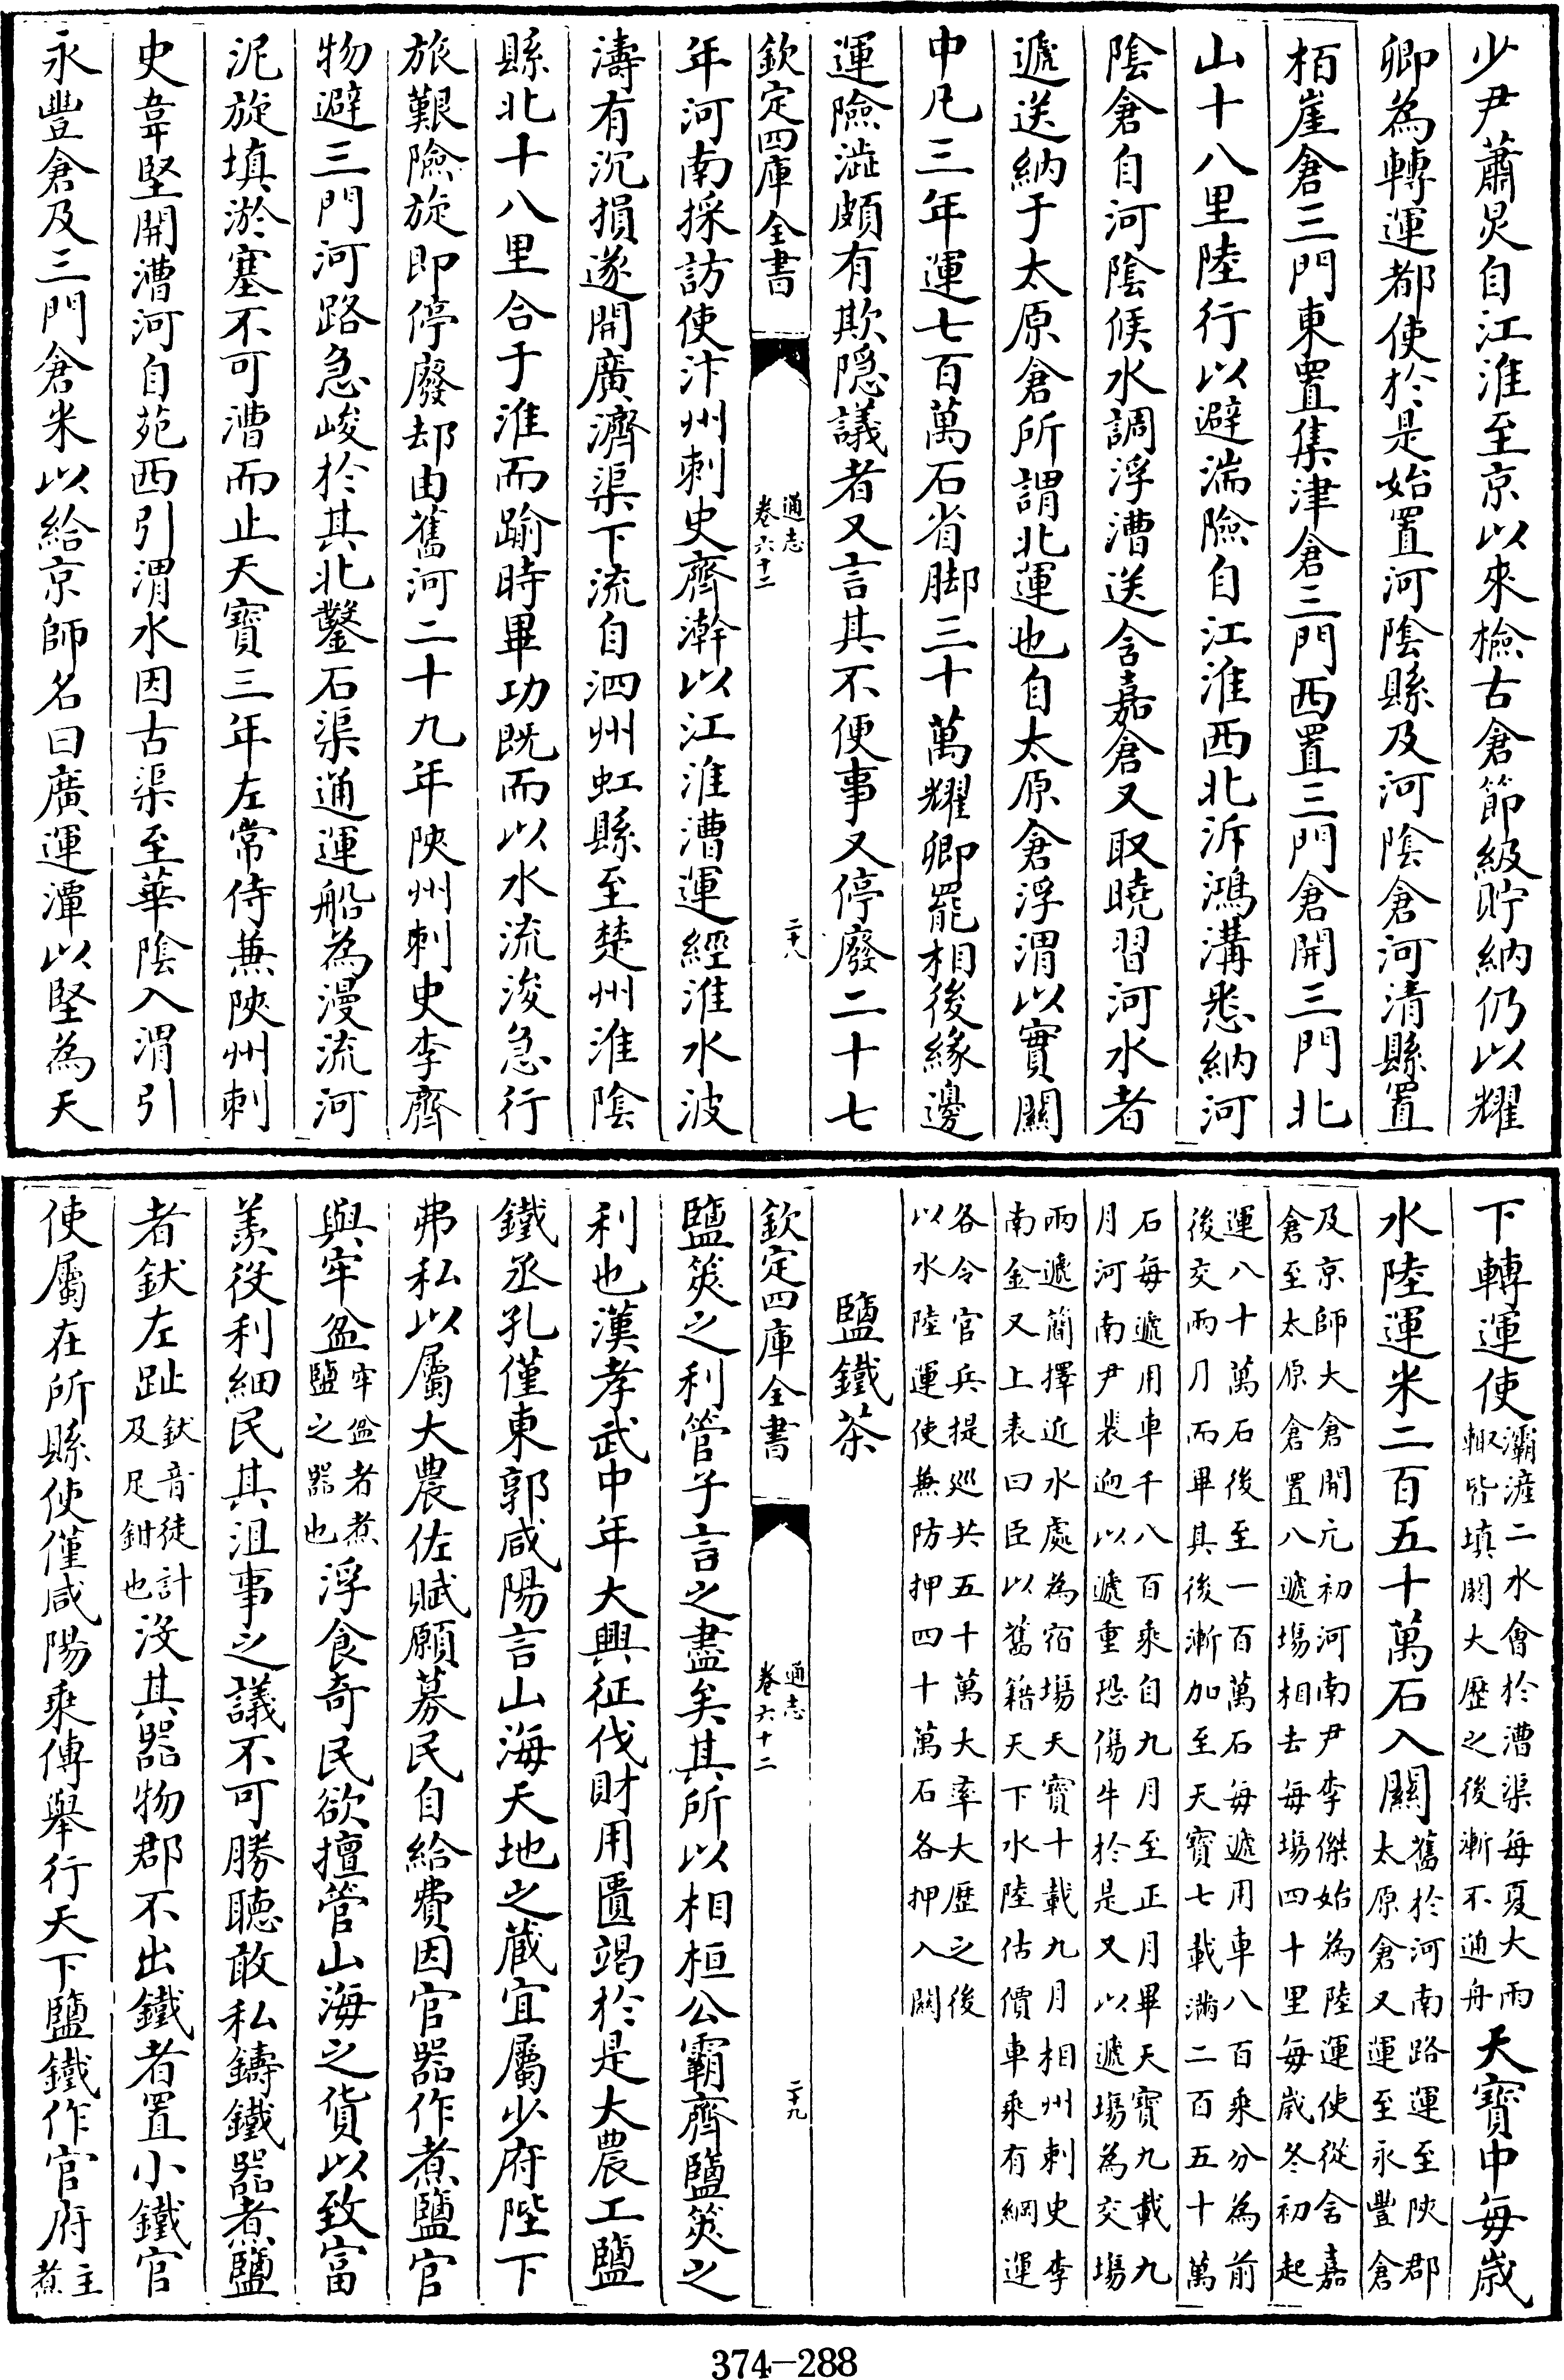 少尹蕭炅自江淮至京以來檢古倉節級貯納仍以耀
卿為轉運都使於是始置河隂縣及河隂倉河清縣置
栢崖倉三門東置集津倉三門西置三門倉開三門北
山十八里陸行以避湍險自江淮西北泝鴻溝悉納河
隂倉自河隂候水調浮漕送含嘉倉又取曉習河水者
遞送納于太原倉所謂北運也自太原倉浮渭以實關
中凡三年運七百萬石省脚三十萬耀卿罷相後緣邊
運險澁頗有欺隠議者又言其不便事又停廢二十七
欽定四庫全書
通志
卷六十二
二十八
年河南採訪使汴州刺史齊澣以江淮漕運經淮水波
濤有沉損遂開廣濟渠下流自泗州虹縣至楚州淮隂
縣北十八里合于淮而踰時畢功既而以水流浚急行
旅艱險旋即停廢却由舊河二十九年陜州刺史李齊
物避三門河路急峻於其北鑿石渠通運船為漫流河
泥旋填淤塞不可漕而止天寳三年左常侍兼陜州刺
史韋堅開漕河自苑西引渭水因古渠至華隂入渭引
永豐倉及三門倉米以給京師名曰廣運潭以堅為天
下轉運使灞滻二水會於漕渠每夏大雨
輒皆填閼大歴之後漸不通舟天寳中每歲
水陸運米二百五十萬石入關舊於河南路運至陜郡
太原倉又運至永豐倉
及京師大倉開元初河南尹李傑始為陸運使從含嘉
倉至太原倉置八遞場相去每場四十里每歲冬初起
運八十萬石後至一百萬石每遞用車八百乘分為前
後交兩月而畢其後漸加至天寳七載滿二百五十萬
石每遞用車千八百乘自九月至正月畢天寳九載九
月河南尹裴迥以遞重恐傷牛於是又以遞場為交場
兩遞簡擇近水處為宿場天寳十載九月相州刺史李
南金又上表曰臣以舊籍天下水陸估價車乘有綱運
各令官兵提巡共五十萬大率大歴之後
以水陸運使兼防押四十萬石各押入關
鹽鐵茶
欽定四庫全書
通志
卷六十二
二十九
鹽筴之利管子言之盡矣其所以相桓公霸齊鹽筴之
利也漢孝武中年大興征伐財用匱竭於是大農工鹽
鐵丞孔僅東郭咸陽言山海天地之藏宜屬少府陛下
弗私以屬大農佐賦願募民自給費因官器作煮鹽官
與牢盆牢盆者煮
鹽之器也浮食奇民欲擅管山海之貨以致富
羡役利細民其沮事之議不可勝聽敢私鑄鐵器煮鹽
者釱左趾釱音徒計
及足鉗也沒其器物郡不出鐵者置小鐵官
使屬在所縣使僅咸陽乘傳舉行天下鹽鐵作官府主
煮
374-288